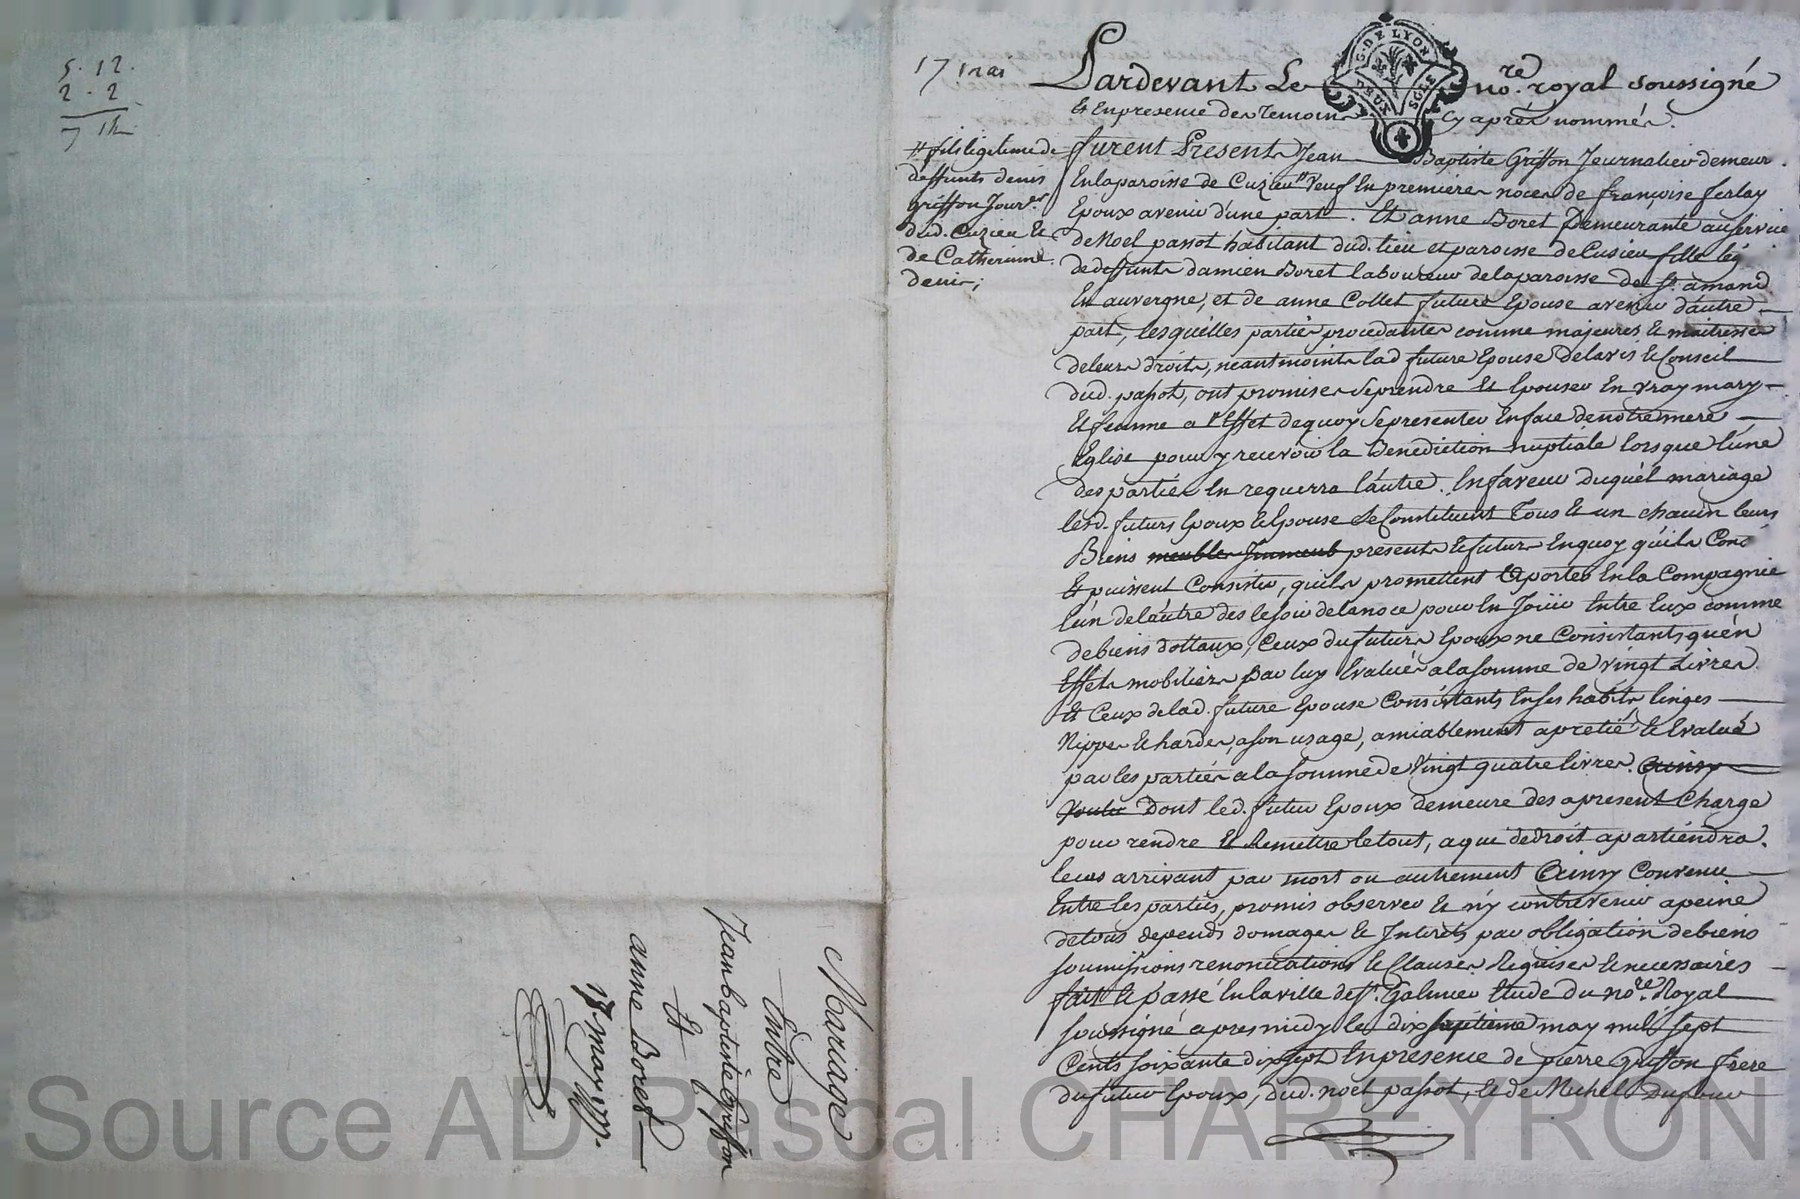 5. 12.
2 - 2
7 14
17 mai
Pardevant Le no.re royal soussigné
G. DE LYON
DEUX SOLS
Et Enpresence des temoins cy après nommés.
furent Presents Jean Baptiste Griffon Journalier demeur.
Enlaparoisse de Cuzieu # Veuf En premieres noces de françoise ferlay
Epoux avenir d'une part. Et anne Boret Demeurante auservice
de Noel passot habitant dud. lieu et paroisse deCusieu fille lég.
dedeffunts damien Boret laboureur delaparoisse de St. amand
En auvergne, et de anne Collet future Epouse avenir d'autre
part, lesquélles partiés procedantes comme majeures & maitresses
deleurs droits, néantmoints lad future Epouse delavis & Conseil
dud. passot, ont promises seprendre Et Epouser En vray mary
& femme a l'Effet dequoy Sepresenter Enface denotre mere
Eglise pour y recevoir la Benediction nuptiale lorsque l'une
des partiés En requerra l'autre. Enfaveur duquél mariage
lesd. futurs Epoux & Epouse Se Constituent Tous & un chacun leurs
Biens meubles Immeub presents & futurs Enquoy qu'ils Cons
Et puissent Consister, quils promettent aporter En la Compagnie
l'un delautre des lesoir delanoce pour En Joüir Entre Eux comme
debiens dottaux, Ceux dufuturs Epoux ne Consistants qu'én
Effets mobiliers par luy Evalués alasomme de vingt Livres
Et Ceux delad. future Epouse Consistants Enses habits linges
Nippes & hardes, ason usage, amiablement apretié & Evalué
par les partiés ala somme de Vingt quatre livres. Ceinsy
Voulu Dont led. futur Epoux demeure des apresent Chargé
pour rendre & Remettre letout, aqui dedroit apartiéndra
lecas arrivant par mort ou autrement Ceinsy Convenu
Entre les partiés, promis observer & n'y contrevenir apeine
detous depends domages & Interets par obligation debiens
soumissions renontiations & Clauses Réquises & necessaires
fait & passé Enlaville de St. Galmier Etude du no.re Royal
soussigné apres midy le dix septieme may mil sept
Cents soixante dix sept Enpresence de pierre Griffon frere
dufutur Epoux, dud. noel passot, & de Michel Dufour
# fils légitime de
deffunts denis
griffon Jour.er
dud. Cuzieu &
de Catherinne
denis,
Mariage
Entre
Jean baptiste Griffon
Et
anne Boret
17 may 1777.
Source AD Pascal CHAREYRON